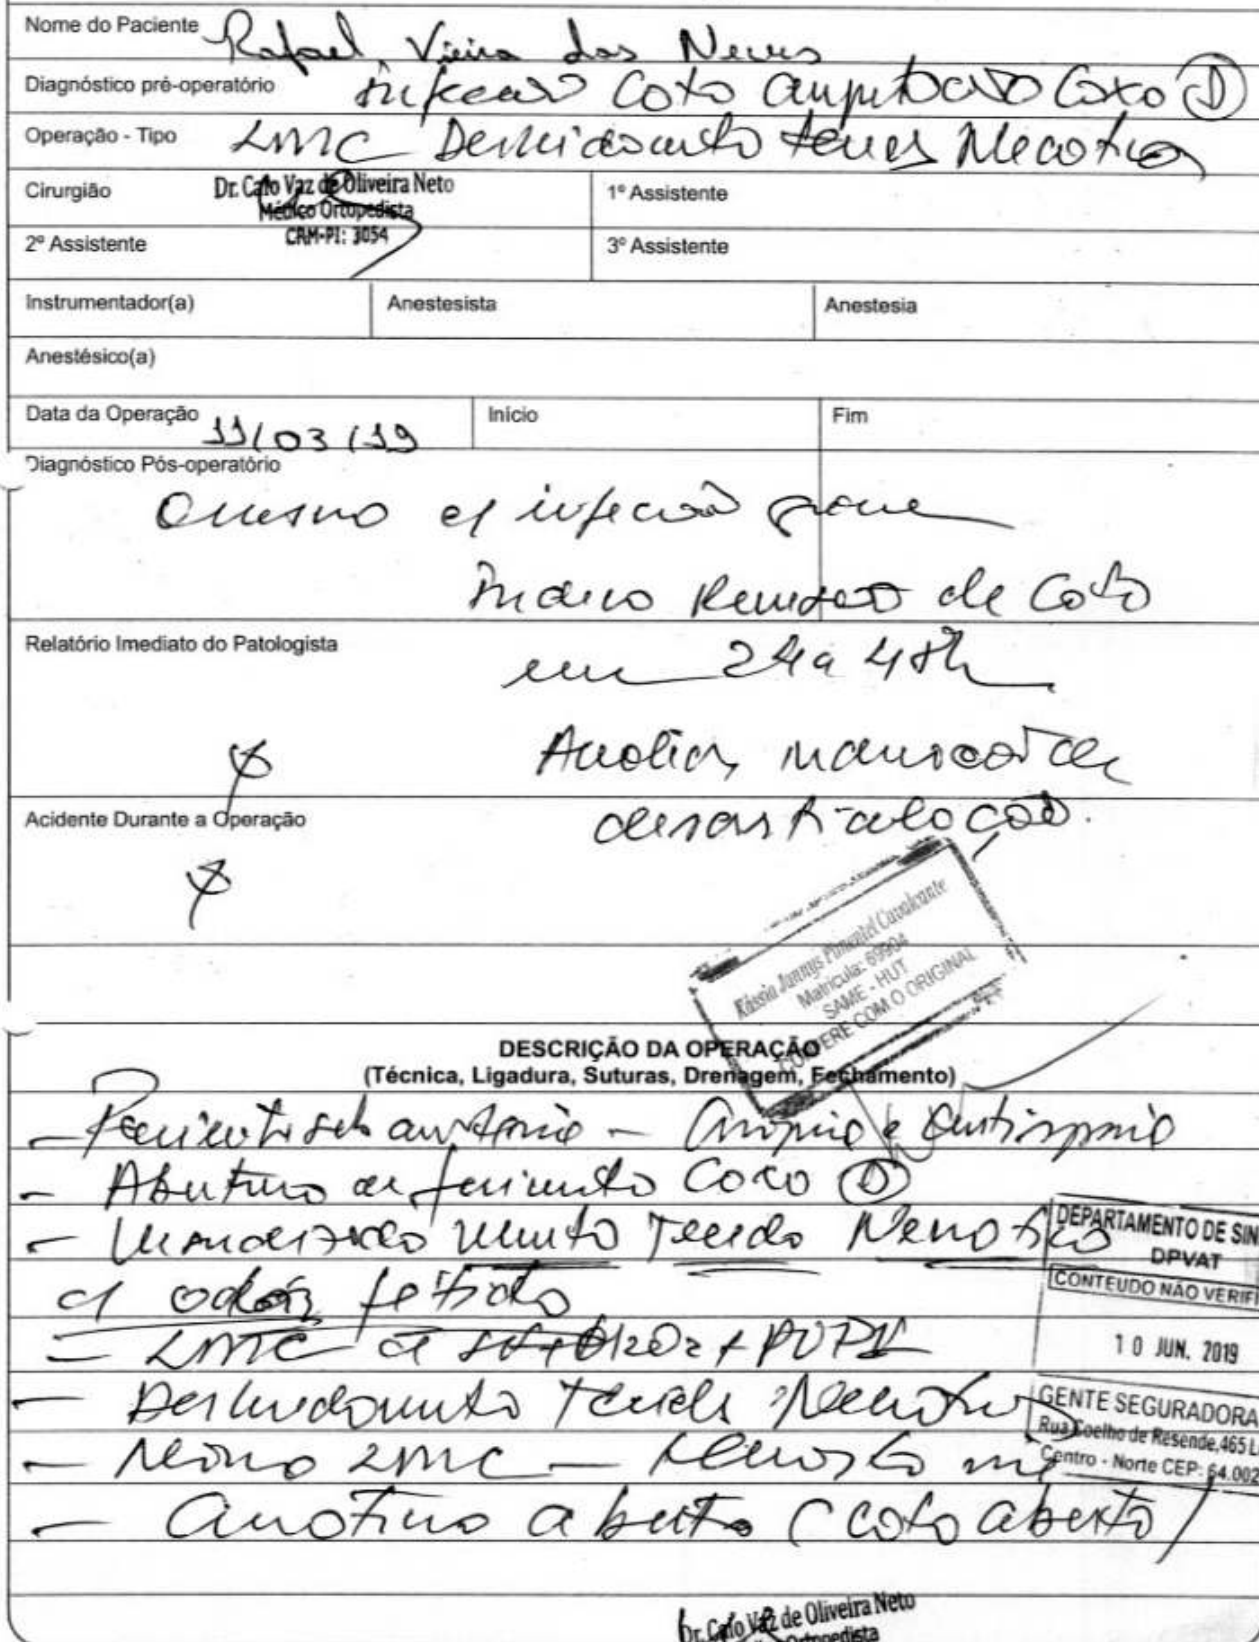 Nome do Paciente Rafael Vieira das Neves
Diagnóstico pré-operatório Infeccao Coto amputacao Coxa (D)
Operação - Tipo LMC Desbridamento tecidos Necoticos
Cirurgião Dr. Caio Vaz de Oliveira Neto 1º Assistente
Médico Ortopedista
CRM-PI: 3054
2º Assistente 3º Assistente
Instrumentador(a) Anestesista Anestesia
Anestésico(a)
Data da Operação 11/03/19 Início Fim
Diagnóstico Pós-operatório
O mesmo c/ infecção grave
Indico Revisao de Coto
Relatório Imediato do Patologista em 24 a 48h
Avaliar
desarticulação.
Acidente Durante a Operação
Kássia Jannys Pimentel Cavalcante
Matricula: 69904
SAME - HUT
CONFERE COM O ORIGINAL
DESCRIÇÃO DA OPERAÇÃO
(Técnica, Ligadura, Suturas, Drenagem, Fechamento)
- Paciente sob anestesia - Assepsia e Antissepsia
- Abertura de ferimento Coxa (D)
- Visualizado Muito Tecido Necrotico
c/ odor fetido
- LMC c/ + PVPI
- Desbridamento Tecidos Necroticos
- Novo LMC -
- Curativo aberto (coto aberto)
DEPARTAMENTO DE SIN
DPVAT
CONTEUDO NÃO VERIFI
10 JUN. 2019
GENTE SEGURADORA
Rua Coelho de Resende, 465 L
Centro - Norte CEP: 64.002
Dr. Caio Vaz de Oliveira Neto
Ortopedista